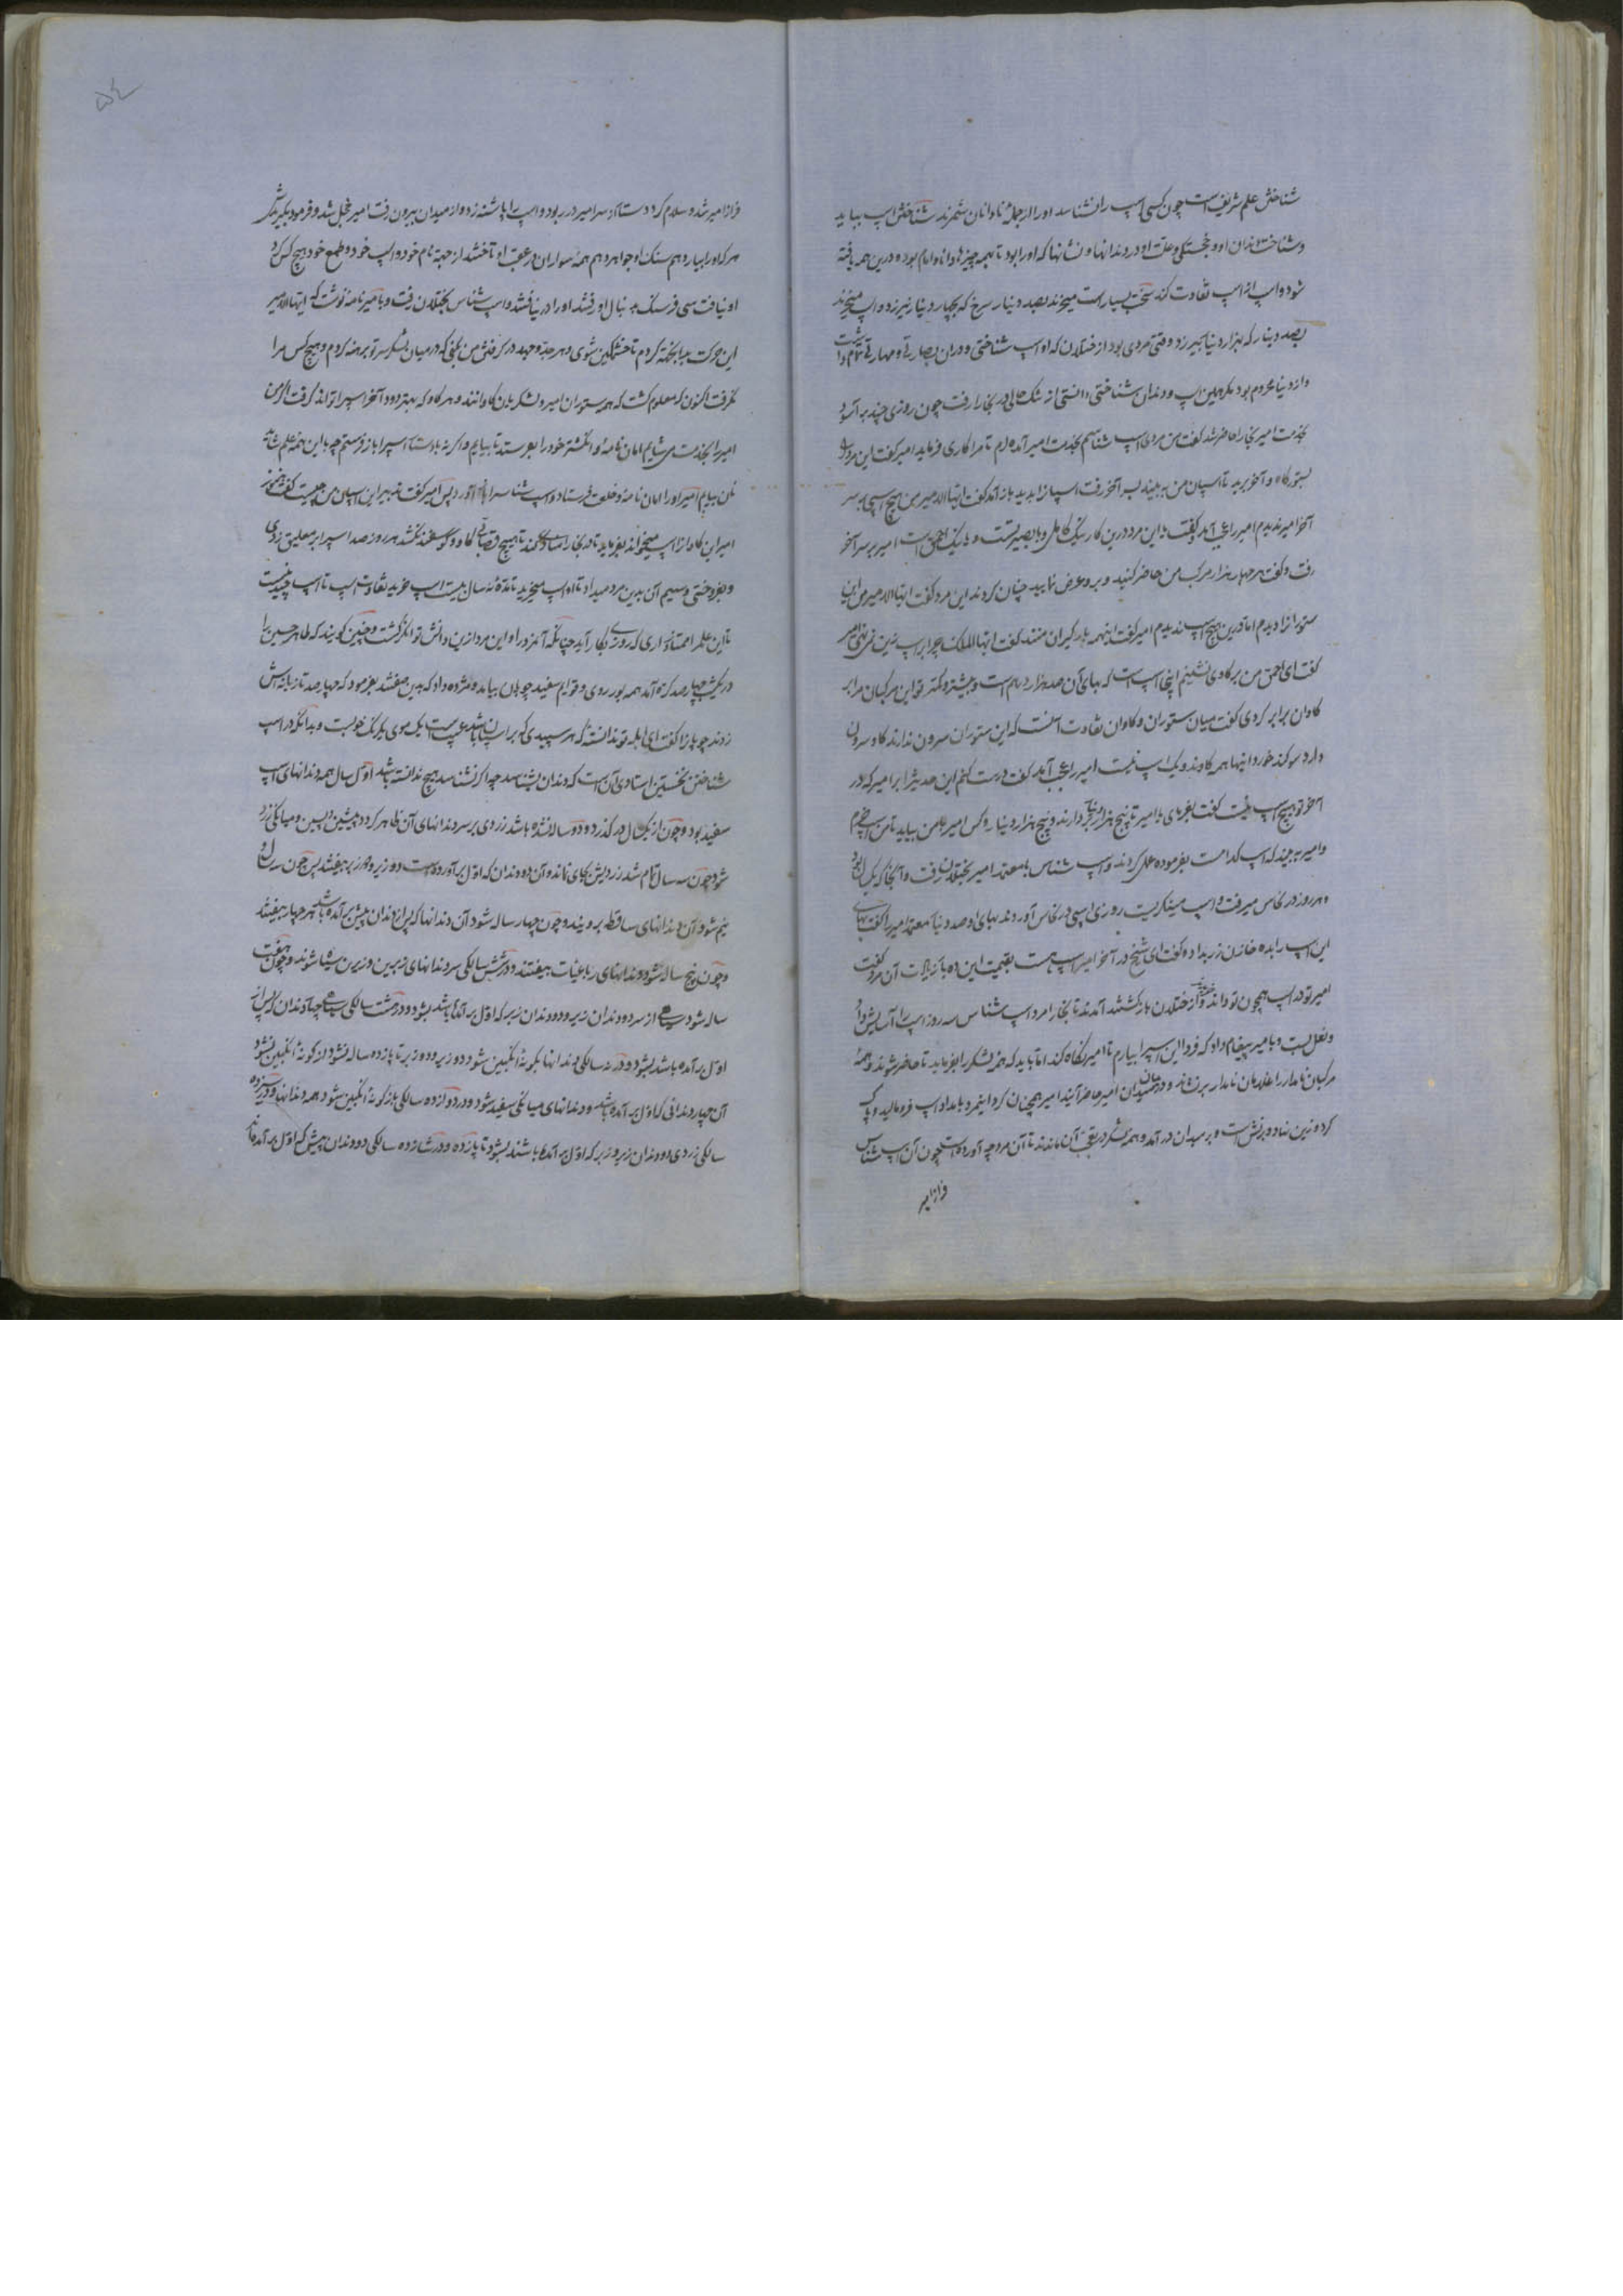 شناختن علم شریف است چون کسی اسب را نشناسد او را از جمله نادانان شمرند شناختن اسب بباید
و شناخت دندان او و خجستگی و علت او در دندانها و نشانها که او را بود تا بهمه چیزها دانا و امام بود و درین همه یافته
شود و اسب از اسب تفاوت کند سخت بسیار است میخرند بصد دینار سرخ که بچهار دینار نیرزد و اسب میخرند
بصد دینار که بهزار دینار بیرزد وقتی مردی بود از ختلان که او اسب شناختی و در آن بصارتی و مهارتی تمام داشت
و از دنیا محروم بود مگر همین اسب و دندان شناختی دانستی از تنگ حالی در بخارا رفت چون روزی چند بر آسود
بخدمت امیر بخارا حاضر شد گفت من مردی اسب شناسم بخدمت امیر آمده‌ام تا مرا کاری فرماید امیر گفت این مرد را
بستورگاه و آخر برید تا اسبان من به بیند بر آخر رفت اسبانرا بدید باز آمد گفت ایها الامیر من هیچ اسبی بر سر
آخر امیر ندیدم امیر را عجب آمد و گفت یا این مرد درین کار نیک کامل و با بصیرتست و یا نیک احمق است امیر بر سر آخر
رفت و گفت هر چهار هزار مرکب من حاضر کنید و برو عرض نمایید چنان کردند این مرد گفت ایها الامیر من این
ستورانرا دیدم اما درین هیچ اسب ندیدم امیر گفت اینهمه بارگیران منند گفت ایها الملک چرا بر اسب زین نمی نهی امیر
گفت ای احمق من بر گاو می نشینم اینجا اسب است که بهای آن صد هزار درم است و بیشتر و کمتر تو این مرکبان مرا بر
گاوان برابر کردی گفت میان ستوران و گاوان تفاوت آنست که این ستوران سرون ندارند گاو سرون
دارد سوگند خورد اینها همه گاوند و یک اسب نیست امیر را عجب آمد گفت درست کنم این حدیث را بر امیر که در
آخر تو هیچ اسب نیست گفت بفرمای یا امیر تا پنج هزار دینار و کس امیر با من بیاید تا من اسب خرم
و امیر به بیند که اسب کدامست بفرموده عمل کردند و اسب شناس با معتمد امیر بختلان رفت و آنجا یک سال بود
و هر روز در نخاس میرفت و اسب مینگریست روزی اسبی در نخاس آوردند بهای او صد دینار معتمد امیر را گفت بهای
این اسب را بده خازن زر بداد و گفت ای شیخ در آخر امیر اسب هست بقیمت این ده بار زیادت آن مرد گفت
امیر تو در اسب همچون تو داند و از ختلان باز گشتند آمدند تا بخارا مرد اسب شناس سه روز اسب را آسایش داد
و نعل بست و با میر پیغام داد که فردا این اسب را بیارم تا امیر نگاه کند اما باید که همه لشکر را بفرماید تا حاضر شوند و همه
مرکبان نامدار را غلامان نامدار بر نشانند و در میدان امیر حاضر آیند امیر همچنان کرد اینمرد بامداد اسب فرو مالید و پاک
کرد و زین نهاد و بر نشست و بر میدان در آمد و همه لشکر در تعجب آن ماندند تا آن مرد چه آورده است چون آن اسب شناس
فراز امیر
۵۴
فراز امیر شد و سلام کرد دستار از سر امیر در ربود و اسب را پاشنه زد و از میدان بیرون رفت امیر خجل شد و فرمود بگیریدش
هر که او را بیارد هم سنگ او جواهر دهم همه سواران در عقب او تاختند از جهة نام خود و اسب خود و طمع خود هیچ کس گرد
او نیافت سی فرسنگ بدنبال او رفتند او را در نیافتند و اسب شناس بختلان رفت و با میر نامه نوشت که ایها الامیر
این حرکت بدانجهة کردم تا خشمگین شوی و هر جد و جهد در گرفتن من بکنی که در میان لشکر سر تو برهنه کردم و هیچ کس مرا
نگرفت اکنون که معلوم گشت که همه ستوران امیر و لشکریان گاوانند و هر گاو که بهتر دود آخر اسب را تواند گرفت اگر من
امیر را بخدمت می شایم امان نامه و انگشتر خود را بفرستد تا بیایم و اگر نه با دستار اسب را باز فرستم چه با این همه علم شاید
تن بیایم امیر او را امان نامه و خلعت فرستاد و اسب شناس را باز آورد پس امیر گفت تدبیر این اسبان من چیست گفت هنوز
امیر این گاو از اسب میخواند بفرماید تا در بخارا منادی کنند تا هیچ قصابی گاو و گوسفند نکشد هر روز صد اسب را بر معلیق زدی
و بفروختی و سیم آن بدین مرد میداد تا او اسب میخرید تا مدة نه سال بیست اسب خرید تفاوت اسب تا اسب چنین است
تا این علم را همتا نداری که روزی بکار آید چنانکه آنمرد را و این مرد از بن دانش توانگر گشت و چنین گویند که طاهر حسین را
در یک شب چهارصد کره آمد همه بور روی و قوایم سفید چوپان بیامد و مژده داد که بدین صفتند بفرمود که چهارصد تازیانه‌اش
زدند چوپانرا گفت ای ابله تو ندانسته که هر سپیدی که بر اسپان باشد عیب است یک موی یکرنگ خوبست و بدانکه در اسب
شناختن نخستین استادی آن است که دندان بشناسد چه اگر نشناسد هیچ ندانسته باشد اول سال همه دندانهای اسب
سفید بود و چون از یکسال در گذرد و دو ساله نشده باشد زردی بر سر دندانهای آن ظاهر گردد پیشین و پسین و میانگی زرد
شود و چون سه سال تمام شد زردیش بجای نماند و آن دو دندان که اول بر آورده است دو زیر و دو زبر بیفتد پس چون سه سال و
نیم شود آن دندانهای ساقط بروینند و چون چهار ساله شود آن دندانها که پس از دندان پیش بر آمده باشد هر چهار بیفتند
و چون پنج ساله شود دندانهای رباعیات بیفتند و در شش سالگی سر دندانهای زیرین و زبرین سیاه شوند و چون هفت
ساله شود سیاهی از سر دو دندان زیر و دو دندان زبر که اول بر آمده باشد بشود و در هشت سالگی سیاهی چهار دندان که پس از
اول بر آمده باشد بشود و در نه سالگی دندانها بگونه انگبین شود دو زیر و دو زبر تا یازده ساله نشود از گونه انگبین نشود
آن چهار دندانی که اول بر آمده باشد و دندانهای میانگی سفید شود و در دوازده سالگی باز گونه انگبین شود همه دندانها و در سیزده
سالگی زردی دو دندان زیر و زبر که اول بر آمده باشند بشود تا پانزده و در شانزده سالگی دو دندان پیش که اول بر آمده‌اند